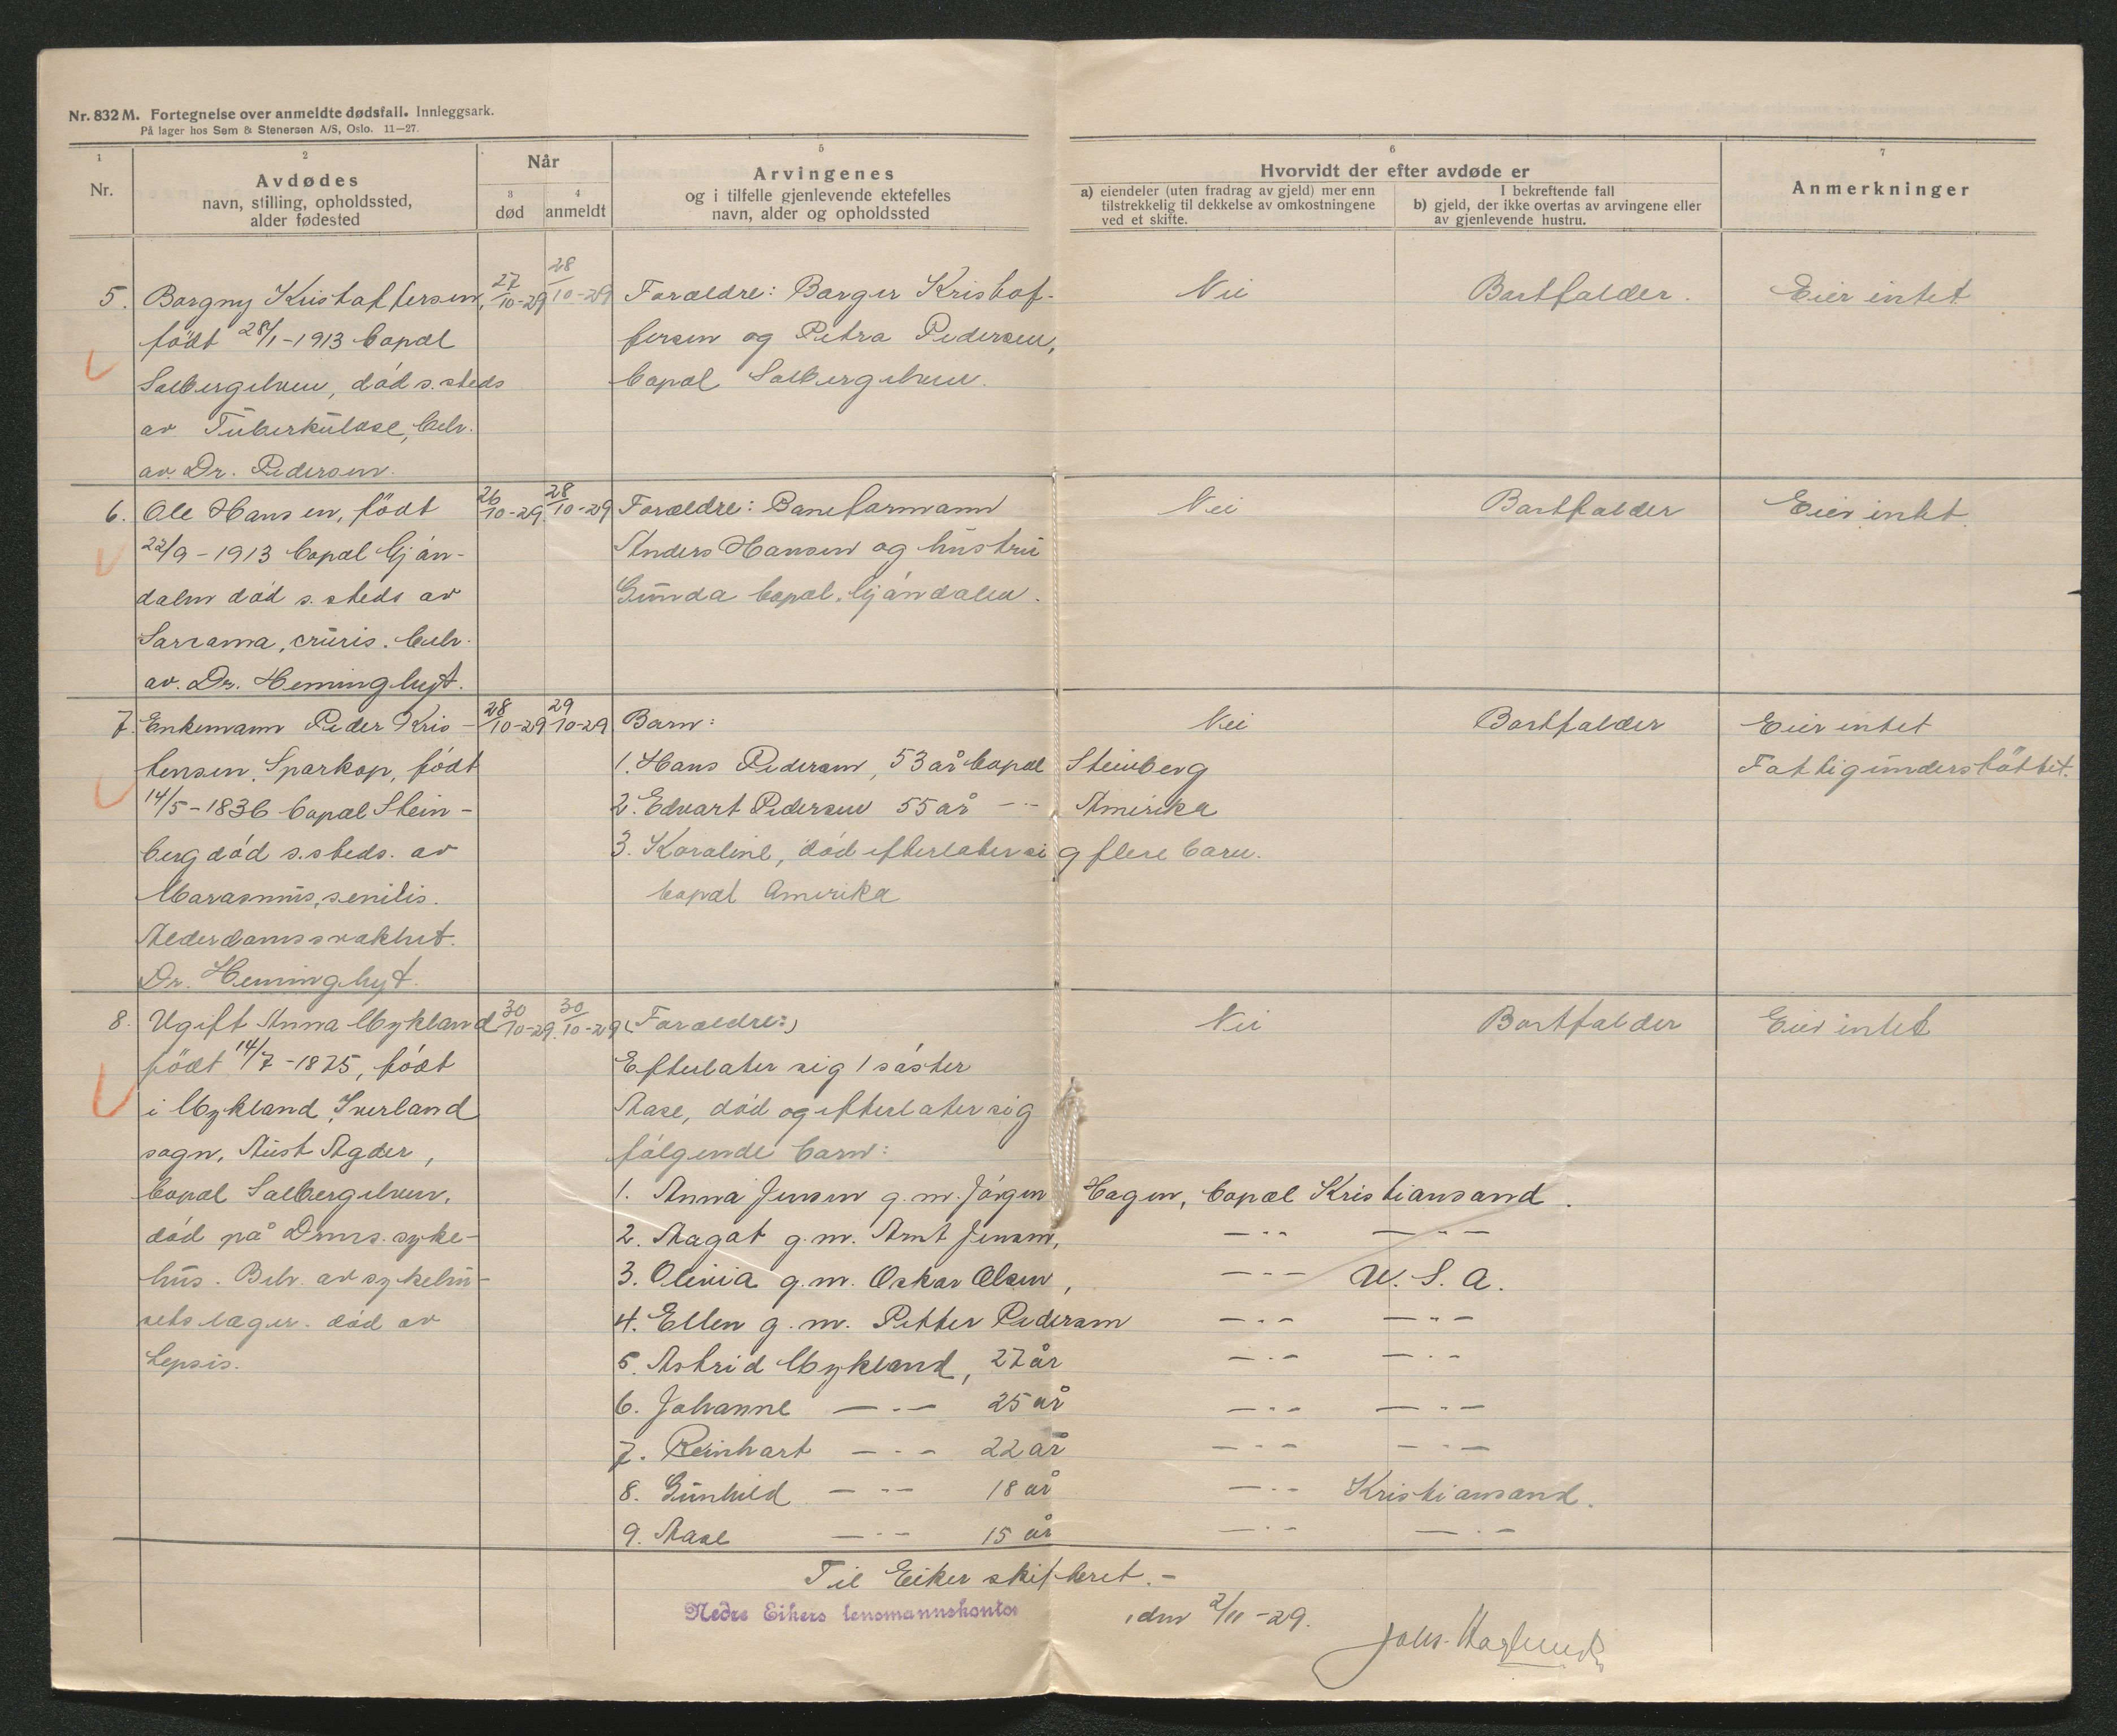 Nr. 832 M. Fortegnelse over anmeldte dødsfall. Innleggsark.
På lager hos Sem & Stenersen A/S, Oslo. 11—27.
1
Nr.
2
Avdødes
navn, stilling, opholdssted,
alder fødested
Når
3
død
4
anmeldt
5
Arvingenes
og i tilfelle gjenlevende ektefelles
navn, alder og opholdssted
6
Hvorvidt der efter avdøde er
a) eiendeler (uten fradrag av gjeld) mer enn
tilstrekkelig til dekkelse av omkostningene
ved et skifte.
I bekreftende fall
b) gjeld, der ikke overtas av arvingene eller
av gjenlevende hustru.
7
Anmerkninger
5. Borgny Kristoffersen,
født 28/1-1913 bopæl
Solbergelven, død s. steds
av Tuberkulose, beh.
av Dr. Pedersen.
27/10-29
28/10-29
Forældre: Borger Kristof-
fersen og Petra Pedersen,
bopæl Solbergelven.
Nei
Bortfalder.
Eier intet
6. Ole Hansen, født
22/9-1913 bopæl Mjøn-
dalen død s. steds av
Sarcoma, cruris. beh.
av. Dr. Heminghyt.
26/10-29
28/10-29
Forældre: Baneformann
Anders Hansen og hustru
Gunda bopæl. Mjøndalen.
Nei
Bortfalder
Eier intet
7. Enkemann Peder Kris-
tensen, Sparkop, født
14/5-1836 bopæl Stein-
berg død s. steds. av
Marasmus, senilis.
Alderdomssvakhet.
Dr. Heminghyt.
28/10-29
29/10-29
Barn:
1. Hans Pedersen, 53 år bopæl Steinberg
2. Edvart Pedersen 55 år -"- Amerika
3. Karoline, død efterlater sig flere barn.
bopæl Amerika
Nei
Bortfalder
Eier intet
Fattigunderstøttet.
8. Ugift Anna Mykland
født 14/7-1875, født
i Mykland, Iverland
sogn, Aust Agder,
bopæl Solbergelven,
død på Drms. syke-
hus. Beh. av sykehu-
sets læger. død av
Sepsis.
30/10-29
30/10-29
(Forældre:)
Efterlater sig 1 søster
Aase, død og efterlater sig
følgende barn:
1. Anna Jensen g.m. Jørgen Hagen, bopæl Kristiansand.
2. Aagot g.m. Arnt Jensen, -"- -"-
3. Olivia g.m. Oskar Olsen, -"- U.S.A.
4. Ellen g.m. Petter Pedersen -"- -"-
5. Astrid Mykland, 27 år -"- -"-
6. Johanne -"- 25 år -"- -"-
7. Reinhart -"- 22 år -"- -"-
8. Gunhild -"- 18 år -"- Kristiansand.
9. Aase -"- 15 år -"- -"-
Nei
Bortfalder
Eier intet
Til Eiker skifteret.-
Nedre Eikers lensmannskontor, den 2/11-29.